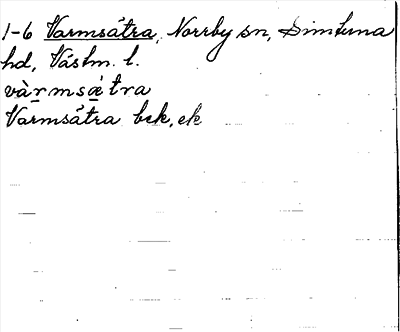 1-6 Varmsätra, Norrby sn, Simtuna
hd, Västm. l.
và̀rmsætra
Varmsätra bek, ek